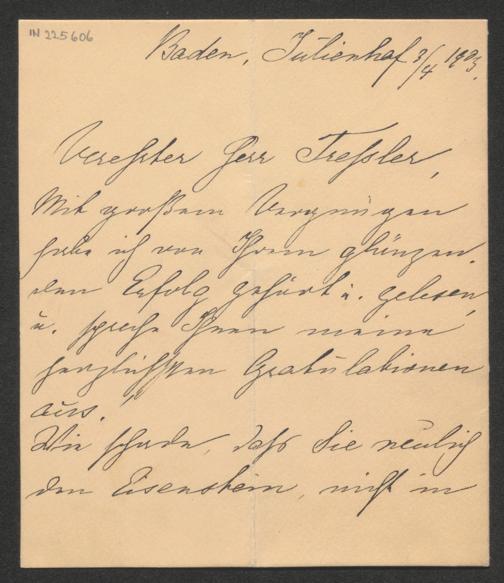 IN 225606
Baden, Julienhof 3/4 1903.
Verehrter Herr Treßler,
Mit großem Vergnügen
habe ich von Ihrem glänzen-
den Erfolg gehört u. gelesen,
u. spreche Ihnen meine
herzlichsten Gratulationen
aus.
Wie schade, daß Sie neulich
den Eisenstein, nicht in